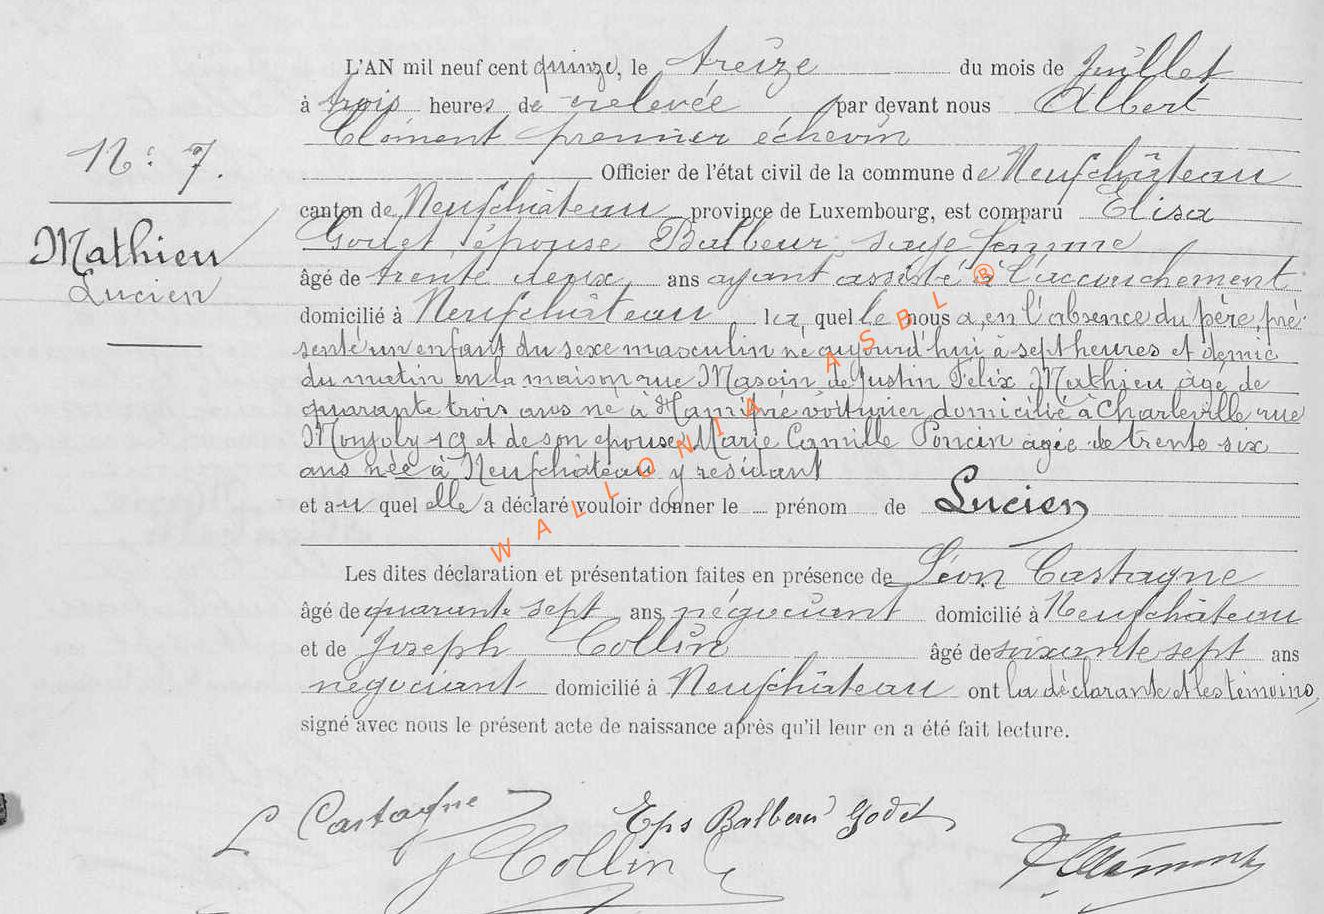 L'AN mil neuf cent quinze, le treize du mois de Juillet
à trois heures de relevée par devant nous Albert
Clément premier échevin
N: 7.
Officier de l'état civil de la commune de Neufchâteau
canton de Neufchâteau province de Luxembourg, est comparu Elisa
Mathieu
Lucien
Godet épouse Balbeur, sage femme
âgé de trente deux ans ayant assisté à l'accouchement
domicilié à Neufchâteau laquelle nous a, en l'absence du père, pré-
senté un enfant du sexe masculin né aujourd'hui à sept heures et demie
du matin en la maison rue de Justin Félix Mathieu âgé de
quarante trois ans né à voiturier domicilié à Charleville rue
19 et de son epouse Marie Camille Poncin âgée de trente six
ans née à Neufchâteau y résidant
et au quel elle a déclaré vouloir donner le prénom de Lucien
Les dites déclaration et présentation faites en présence de Léon Castagne
âgé de quarante sept ans négociant domicilié à Neufchâteau
et de Joseph Collin âgé de soixante sept ans
négociant domicilié à Neufchâteau ont la déclarante et les témoins,
signé avec nous le présent acte de naissance après qu'il leur en a été fait lecture.
L Castagne
Eps Balbeur Godet
J Collin
A Clément
WALLONIA ASBL ®